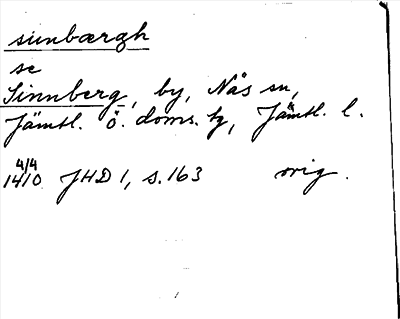 sunbærgh
se
Sinnberg, by, Nås sn,
Jämtl. ö. doms. tg, Jämtl. l.
4/4
1410 JHD 1, s. 163 orig.